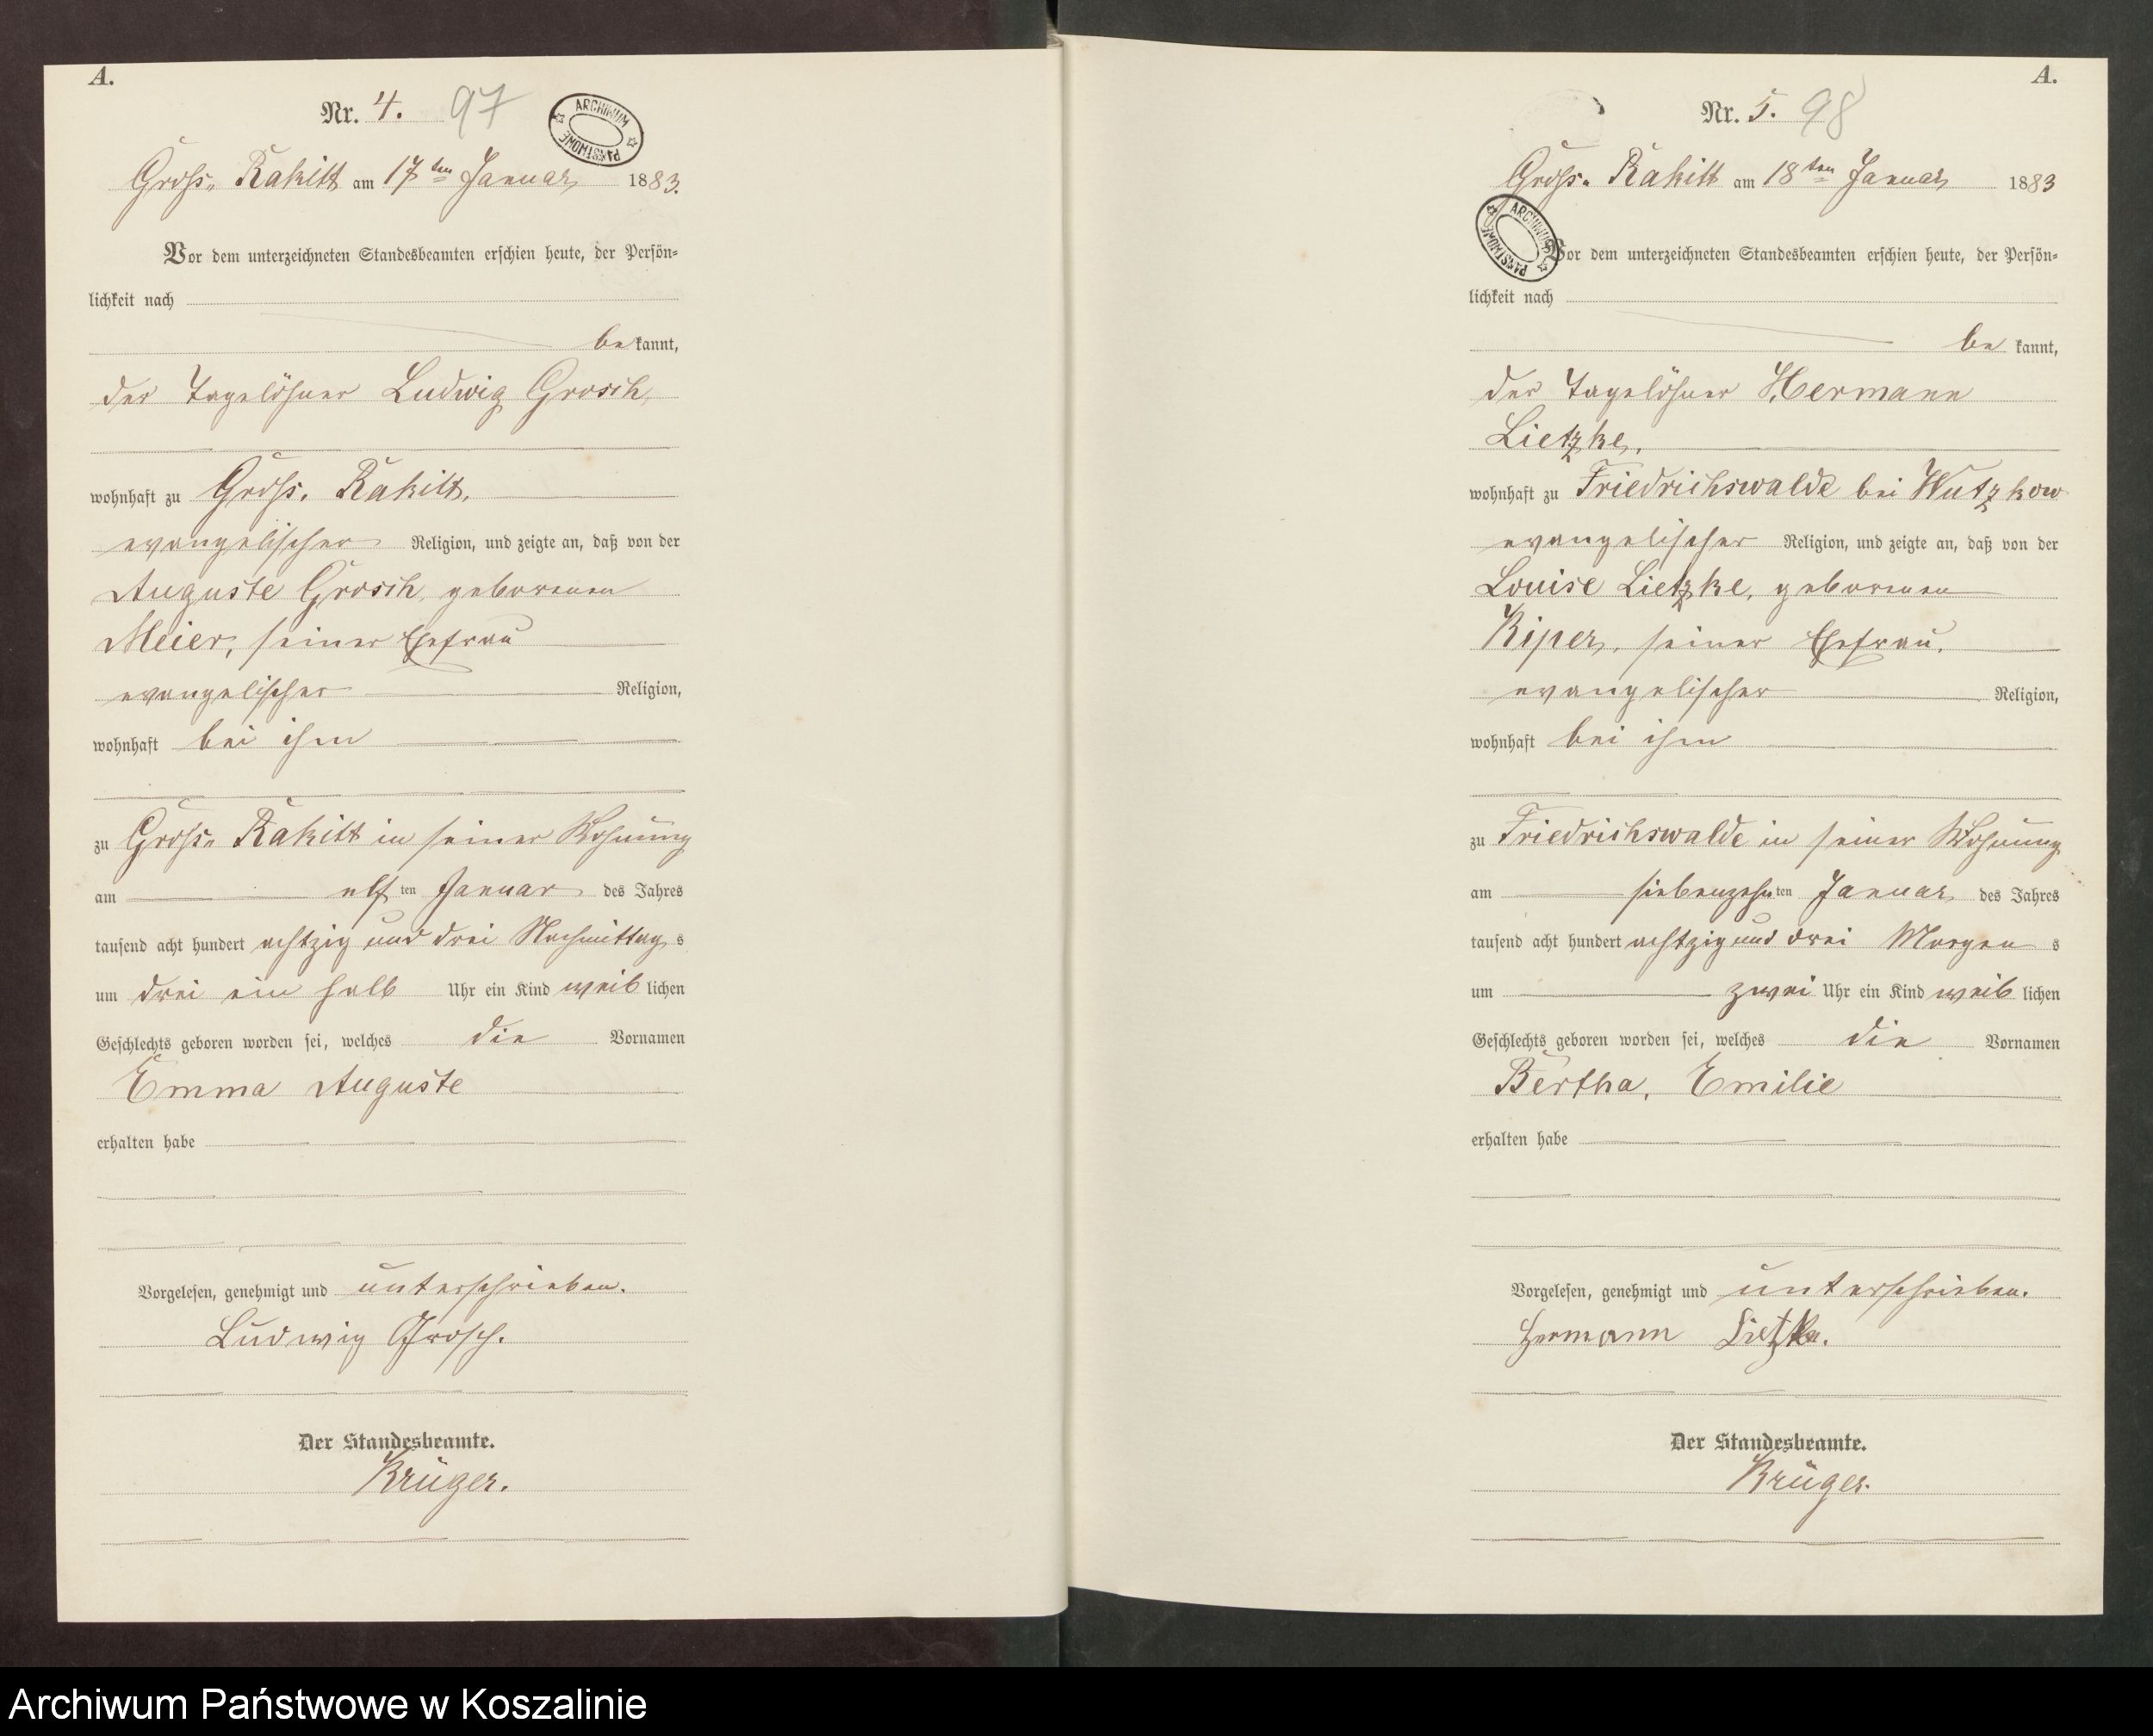 A.
Nr. 4. 97
ARCHIWUM PAŃSTWOWE
Gross. Rakitt am 17ten Januar 1883.
Vor dem unterzeichneten Standesbeamten erschien heute, der Persön-
lichkeit nach
bekannt,
der Tagelöhner Ludwig Grosch,
wohnhaft zu Gross. Rakitt,
evangelischer Religion, und zeigte an, daß von der
Auguste Grosch, geborenen
Meier, seiner Ehefrau
evangelischer Religion,
wohnhaft bei ihm
zu Gross. Rakitt in seiner Wohnung
am elften Januar des Jahres
tausend acht hundert achtzig und drei Nachmittags
um drei ein halb Uhr ein Kind weiblichen
Geschlechts geboren worden sei, welches die Vornamen
Emma Auguste
erhalten habe
Vorgelesen, genehmigt und unterschrieben.
Ludwig Grosch.
Der Standesbeamte.
Krüger.
A.
Nr. 5. 98
Gross. Rakitt am 18ten Januar 1883
ARCHIWUM PAŃSTWOWE
Vor dem unterzeichneten Standesbeamten erschien heute, der Persön-
lichkeit nach
bekannt,
der Tagelöhner Hermann
Lietzke,
wohnhaft zu Friedrichswalde bei Wutzkow
evangelischer Religion, und zeigte an, daß von der
Louise Lietzke, geborenen
Kiper, seiner Ehefrau,
evangelischer Religion,
wohnhaft bei ihm
zu Friedrichswalde in seiner Wohnung
am siebenzehnten Januar des Jahres
tausend acht hundert achtzig und drei Morgens
um zwei Uhr ein Kind weiblichen
Geschlechts geboren worden sei, welches die Vornamen
Bertha, Emilie
erhalten habe
Vorgelesen, genehmigt und unterschrieben.
Hermann Lietzke.
Der Standesbeamte.
Krüger.
Archiwum Państwowe w Koszalinie